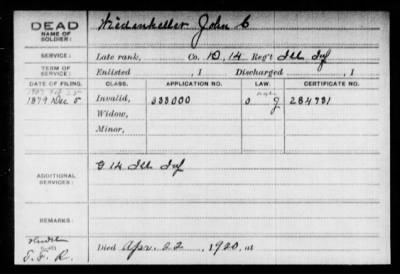 DEAD
NAME OF SOLDIER: Wiedenheller John C
SERVICE: Late rank, Co. D, 14 Reg't Ill Inf
TERM OF SERVICE: Enlisted , 1 Discharged , 1
DATE OF FILING. CLASS. APPLICATION NO. LAW. CERTIFICATE NO.
1879 Dec 5 Invalid, 333000 G 264731
Widow,
Minor,
ADDITIONAL SERVICES: G 14 Ill Inf
REMARKS:
Died Apr. 22, 1920, at